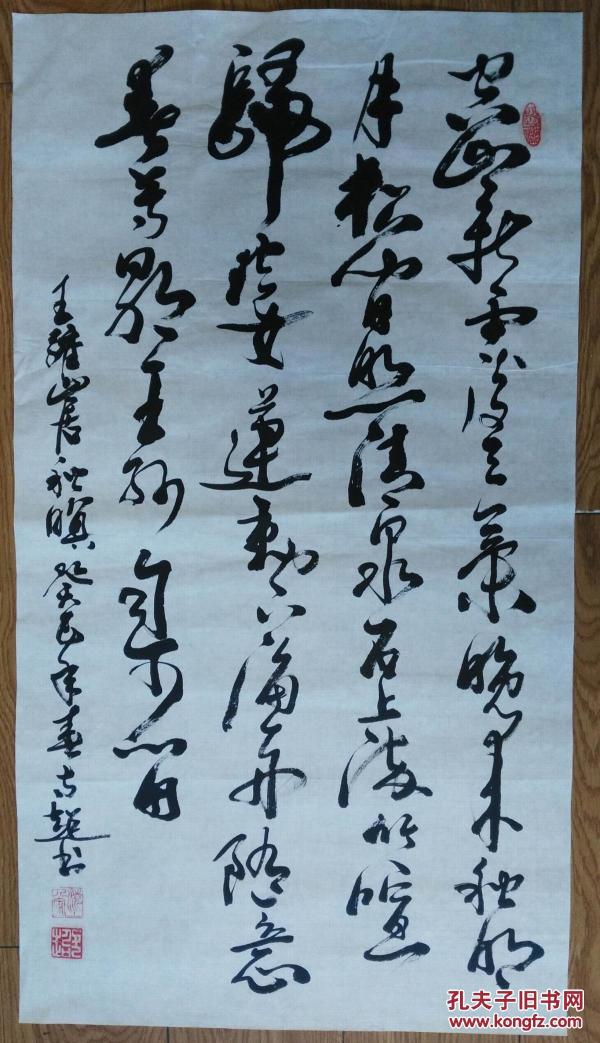 空山新雨後天氣晚來秋明
月松間照清泉石上流竹喧
歸浣女蓮動下漁舟隨意
春芳歇王孫自可留
王維山居秋暝癸巳年春超书
孔夫子旧书网
www.kongfz.com